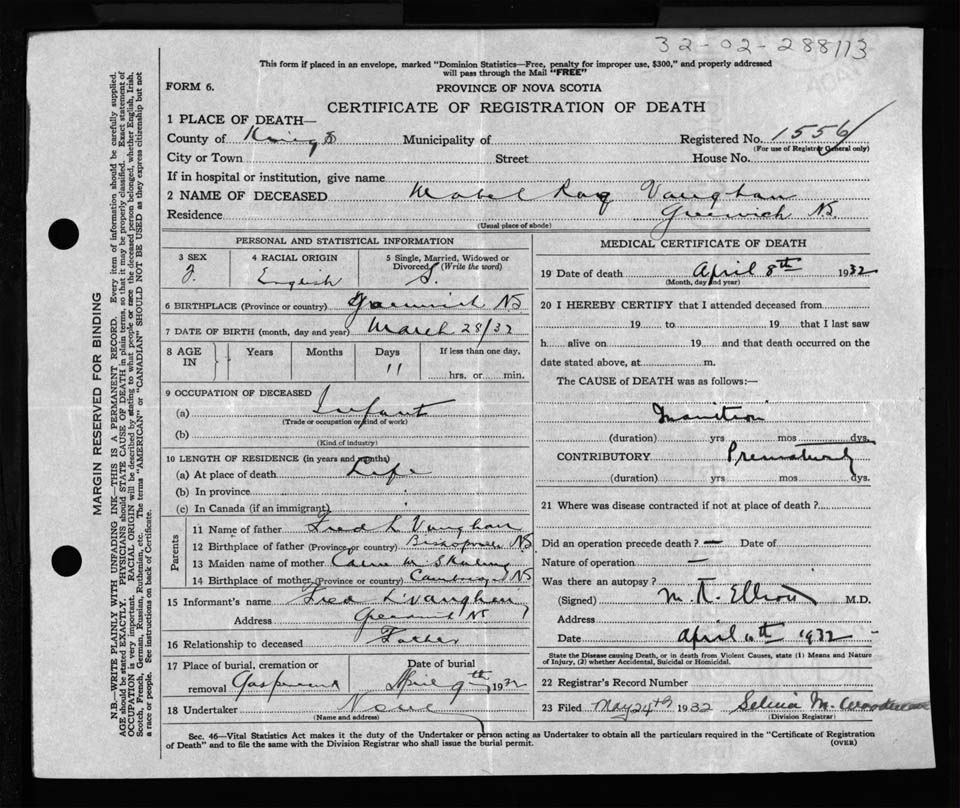 32-02-288113
This form if placed in an envelope, marked "Dominion Statistics—Free, penalty for improper use, $300," and properly addressed
will pass through the Mail "FREE"
FORM 6.
PROVINCE OF NOVA SCOTIA
CERTIFICATE OF REGISTRATION OF DEATH
1 PLACE OF DEATH—
County of Kings Municipality of Registered No. 1556
(For use of Registrar General only)
City or Town Street House No.
If in hospital or institution, give name
2 NAME OF DECEASED Mabel Vaughan
Residence Greenwich NS
(Usual place of abode)
MARGIN RESERVED FOR BINDING
N.B.—WRITE PLAINLY WITH UNFADING INK—THIS IS A PERMANENT RECORD. Every item of information should be carefully supplied.
AGE should be stated EXACTLY. PHYSICIANS should STATE CAUSE OF DEATH in plain terms, so that it may be properly classified. Exact statement of
OCCUPATION is very important. RACIAL ORIGIN will be described by stating to what people or race the deceased person belonged, whether English, Irish,
Scotch, French, German, Russian, Ruthenian, etc. The terms "AMERICAN" or "CANADIAN" SHOULD NOT BE USED as they express citizenship but not
a race or people. See instructions on back of Certificate.
PERSONAL AND STATISTICAL INFORMATION
3 SEX 4 RACIAL ORIGIN 5 Single, Married, Widowed or
Divorced (Write the word)
F. English S.
6 BIRTHPLACE (Province or country) Greenwich NS
7 DATE OF BIRTH (month, day and year) March 28/32
8 AGE IN Years Months Days If less than one day,
11 hrs. or min.
9 OCCUPATION OF DECEASED
(a) Infant
(Trade or occupation or kind of work)
(b)
(Kind of industry)
10 LENGTH OF RESIDENCE (in years and months)
(a) At place of death Life
(b) In province
(c) In Canada (if an immigrant)
Parents
11 Name of father Fred L Vaughan
12 Birthplace of father (Province or country) NS
13 Maiden name of mother M
14 Birthplace of mother (Province or country) NS
15 Informant's name Fred L Vaughan
Address Greenwich NS
16 Relationship to deceased Father
17 Place of burial, cremation or Date of burial
removal April 9th, 1932
18 Undertaker None
(Name and address)
MEDICAL CERTIFICATE OF DEATH
19 Date of death April 8th 1932
(Month, day and year)
20 I HEREBY CERTIFY that I attended deceased from
19 to 19 that I last saw
h alive on 19 and that death occurred on the
date stated above, at m.
The CAUSE of DEATH was as follows:—
Inanition
(duration) yrs mos dys.
CONTRIBUTORY Prematurity
(duration) yrs mos dys.
21 Where was disease contracted if not at place of death?
Did an operation precede death? — Date of
Nature of operation —
Was there an autopsy?
(Signed) M. K. Elliott M.D.
Address
Date April 10th 1932
State the Disease causing Death, or in death from Violent Causes, state (1) Means and Nature
of Injury, (2) whether Accidental, Suicidal or Homicidal.
22 Registrar's Record Number
23 Filed May 24th 1932 Selina M.
(Division Registrar)
Sec. 46—Vital Statistics Act makes it the duty of the Undertaker or person acting as Undertaker to obtain all the particulars required in the "Certificate of Registration
of Death" and to file the same with the Division Registrar who shall issue the burial permit. (OVER)